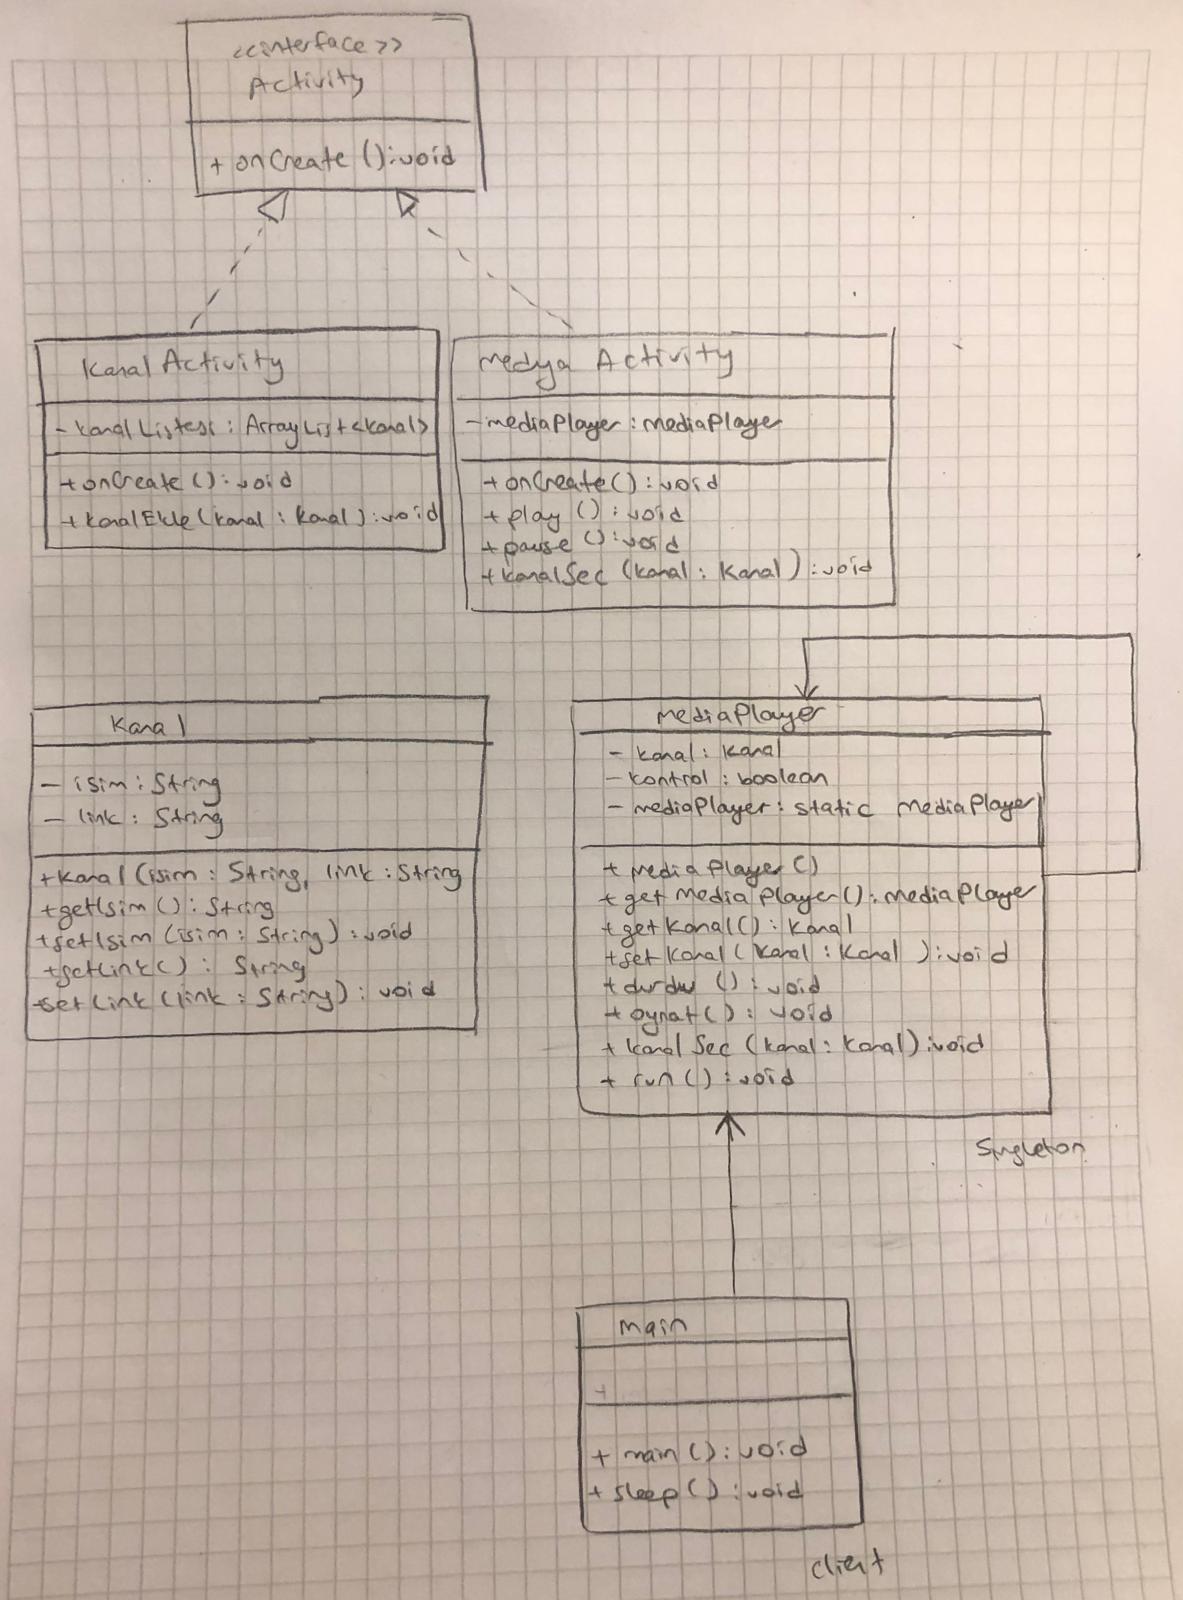 <<interface>>
Activity
+ onCreate ():void
Kanal Activity
- kanalListesi : ArrayList<Kanal>
+onCreate (): void
+kanalEkle(kanal : Kanal): void
Medya Activity
-mediaPlayer : mediaPlayer
+onCreate() : void
+play () : void
+pause () : void
+kanalSec (kanal : Kanal) : void
Kanal
- isim : String
- link : String
+Kanal (isim : String, link : String
+getIsim () : String
+setIsim (isim : String) : void
+getLink() : String
+setLink (link : String) : void
mediaPlayer
- kanal : Kanal
- kontrol : boolean
- mediaPlayer : static mediaPlayer
+ mediaPlayer ()
+ getMediaPlayer():mediaPlayer
+getKanal() : Kanal
+setKanal (kanal : Kanal ) : void
+durdur () : void
+ oynat() : void
+ kanalSec (kanal : Kanal) : void
+ run () : void
Singleton
main
+
+ main () : void
+ sleep() : void
client